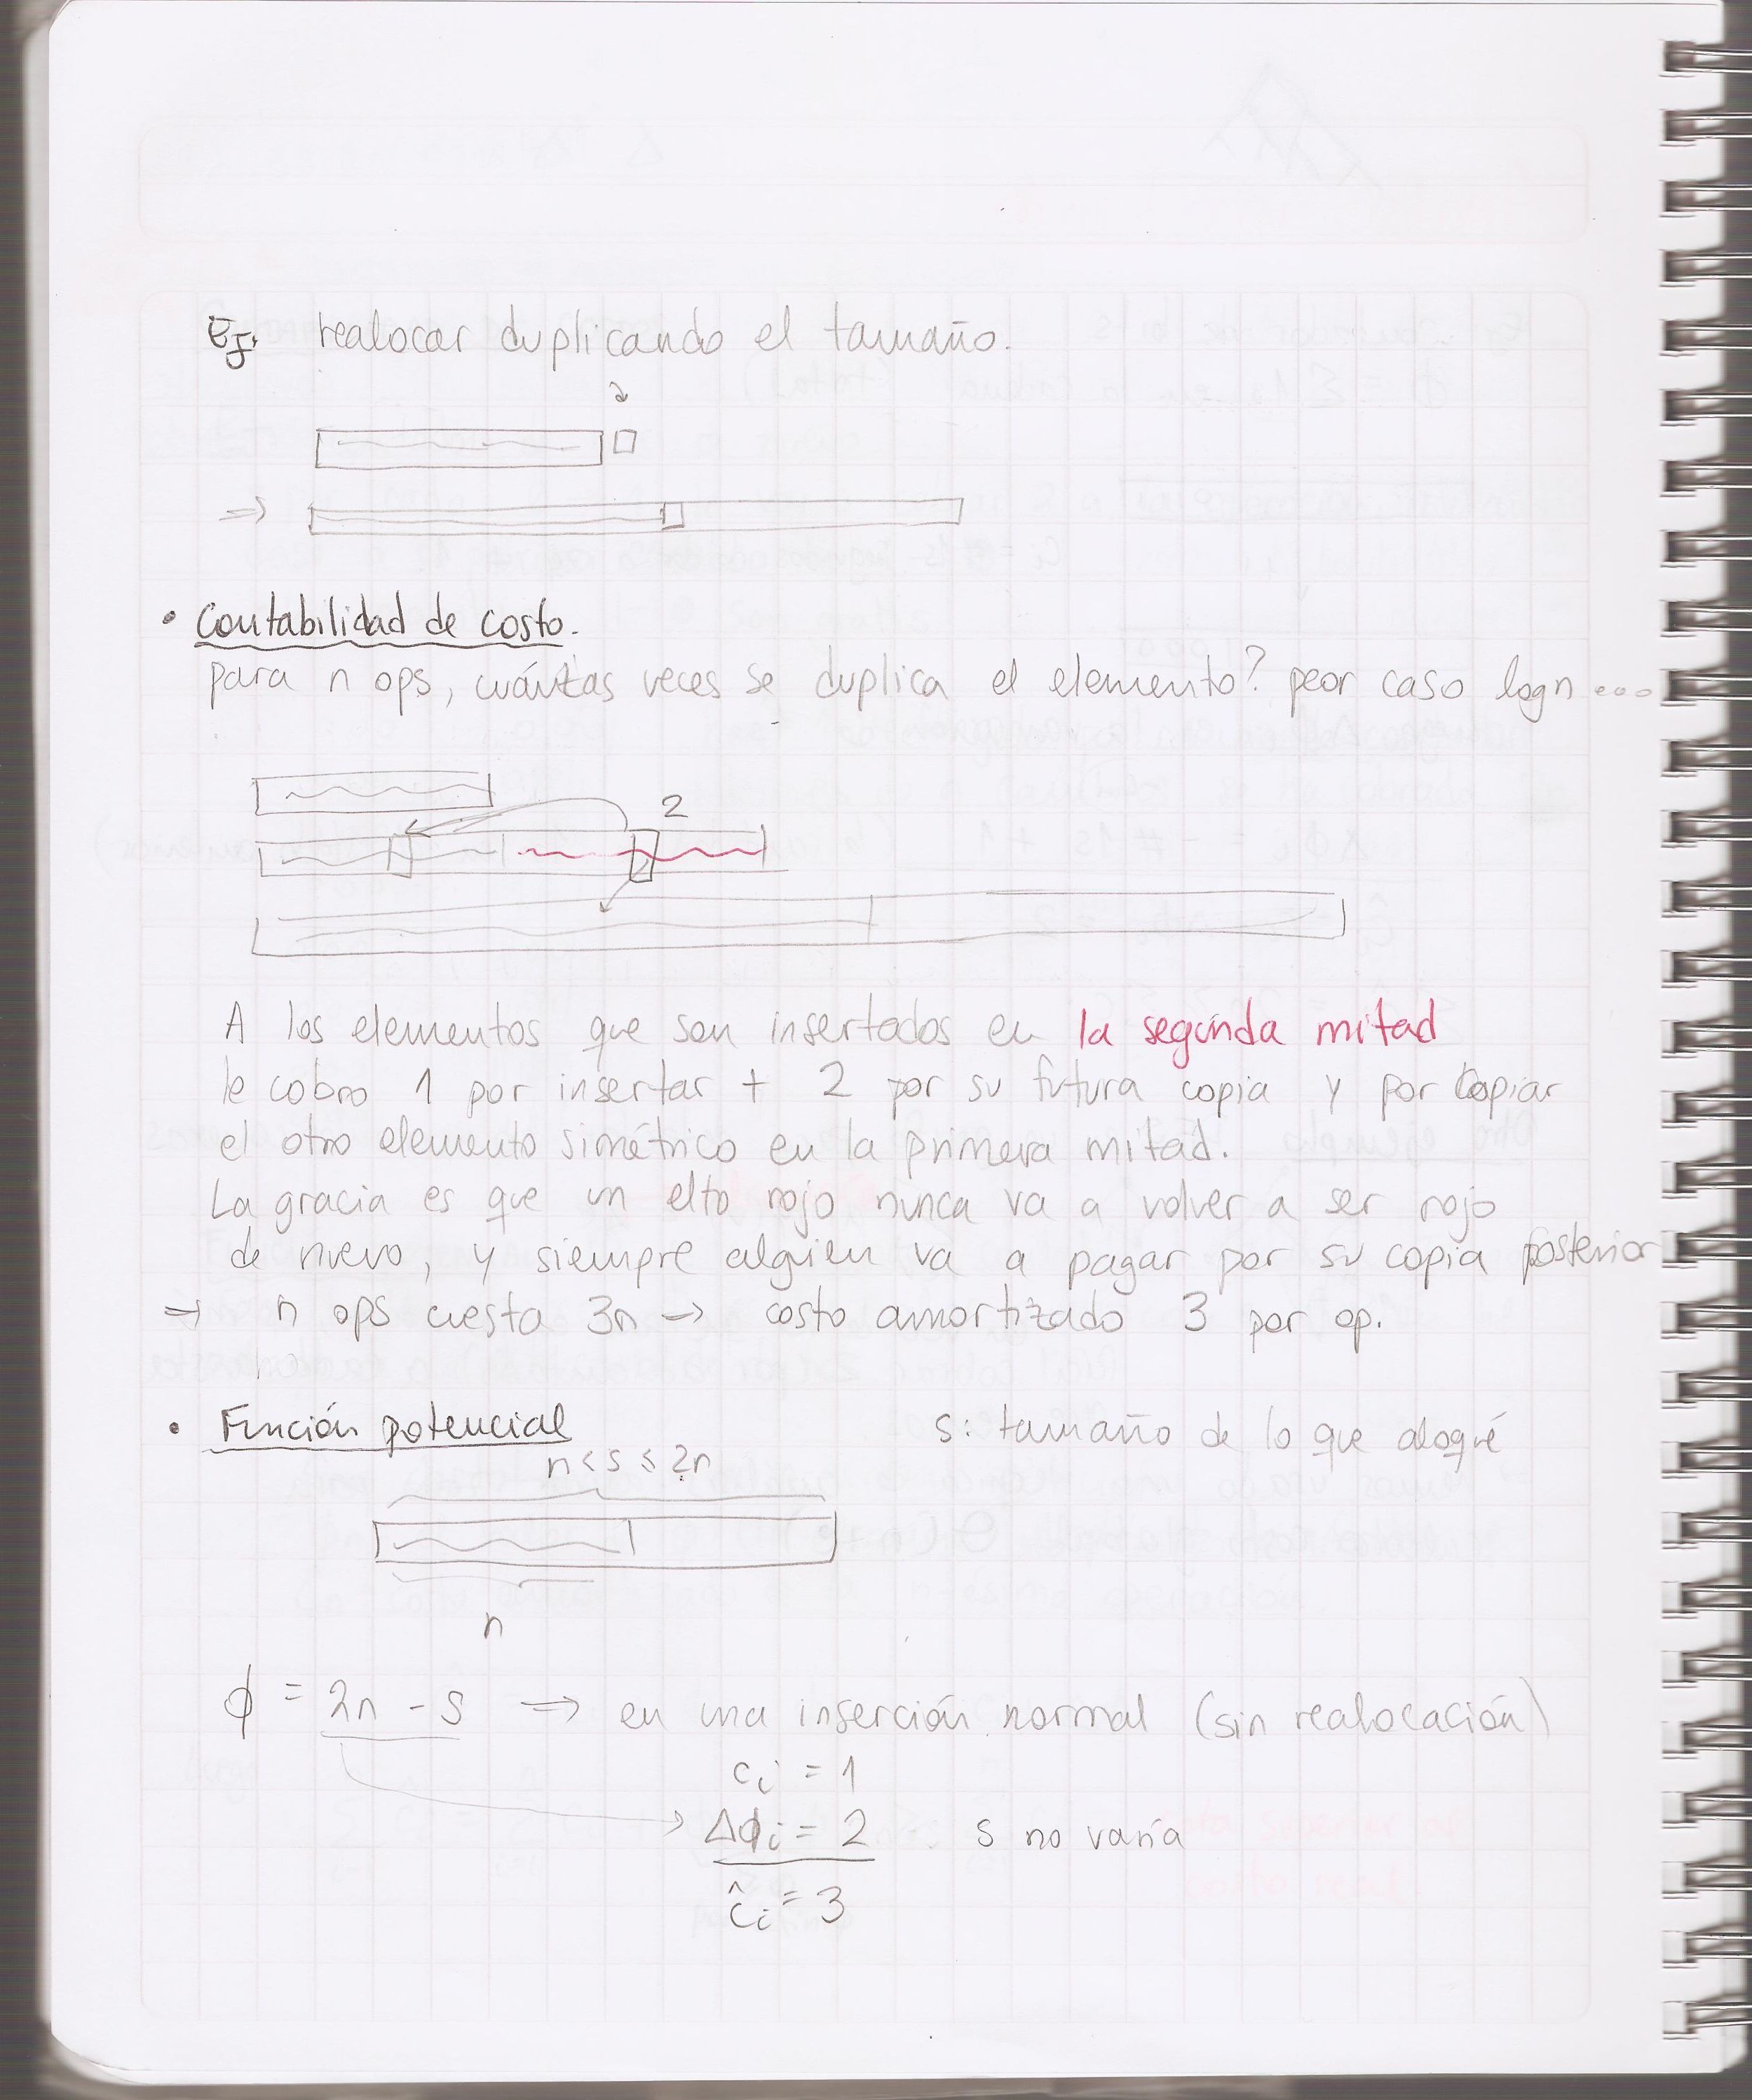 Ej. realocar duplicando el tamaño.
⇒
• Contabilidad de costo.
para n ops, cuántas veces se duplica el elemento? peor caso logn...
2
A los elementos que son insertados en la segunda mitad
le cobro 1 por insertar + 2 por su futura copia y por copiar
el otro elemento simétrico en la primera mitad.
La gracia es que un elto rojo nunca va a volver a ser rojo
de nuevo, y siempre alguien va a pagar por su copia posterior
→ n ops cuesta 3n → costo amortizado 3 por op.
• Función potencial s: tamaño de lo que aloqué
n < s ≤ 2n
n
ϕ = 2n - s ⇒ en una inserción normal (sin realocación)
ci = 1
Δϕi = 2 s no varía
ĉi = 3